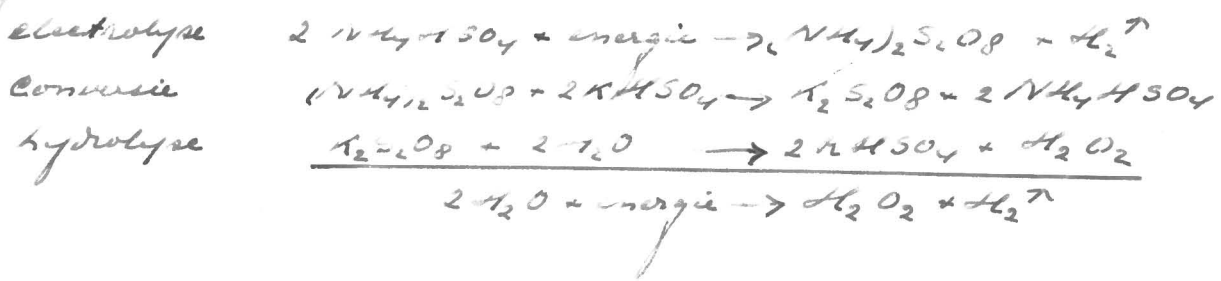 electrolyse 2 NH4HSO4 + energie → (NH4)2S2O8 + H2↑
Conversie (NH4)2S2O8 + 2KHSO4 → K2S2O8 + 2NH4HSO4
hydrolyse K2S2O8 + 2H2O → 2KHSO4 + H2O2
2H2O + energie → H2O2 + H2↑